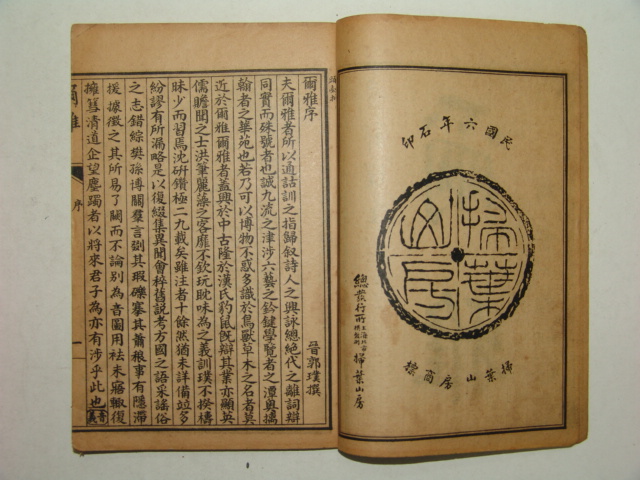 民國六年石印
掃葉山房
總發行所 上海北市棋盤街 掃葉山房
掃葉山房商標
爾雅序
晉郭璞撰
夫爾雅者所以通詁訓之指歸敘詩人之興詠總絕代之離詞辯
同實而殊號者也誠九流之津涉六藝之鈐鍵學覽者之潭奧摛
翰者之華苑也若乃可以博物不惑多識於鳥獸草木之名者莫
近於爾雅爾雅者蓋興於中古隆於漢氏豹鼠旣辯其業亦顯英
儒贍聞之士洪筆麗藻之客靡不欽玩耽味為之義訓璞不揆檮
昧少而習焉沈研鑽極二九載矣雖注者十餘然猶未詳備竝多
紛謬有所漏略是以復綴集異聞會稡舊說考方國之語采謠俗
之志錯綜樊孫博關羣言剟其瑕礫搴其蕭稂事有隱滯
援據徵之其所易了闕而不論別為音圖用祛未寤輒復
擁篲清道企望塵躅者以將來君子為亦有涉乎此也 音義
爾雅
序
一